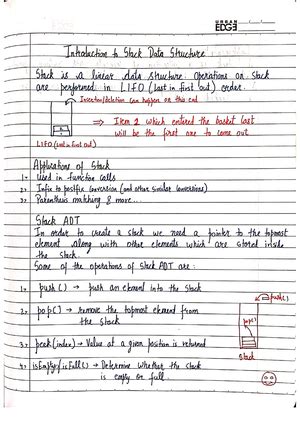 URBAN
EDGE
Introduction to Stack Data Structure
Stack is a linear data structure. Operations on stack
are performed in LIFO (Last in first out) order.
Insertion/deletion can happen on this end
⇒ Item 2 which entered the basket last
will be the first one to come out
LIFO (Last in first out)
Applications of Stack
1→ Used in function calls
2→ Infix to postfix conversion (and other similar conversions)
3→ Parenthesis matching & more...
Stack ADT
In order to create a stack we need a pointer to the topmost
element along with other elements which are stored inside
the stack.
Some of the operations of Stack ADT are:
1→ push() → push an element into the Stack
push()
2→ pop() → remove the topmost element from
the stack
pop()
3→ peek(index) → Value at a given position is returned
Stack
4→ isEmpty/isFull() → Determine whether the stack
is empty or full.